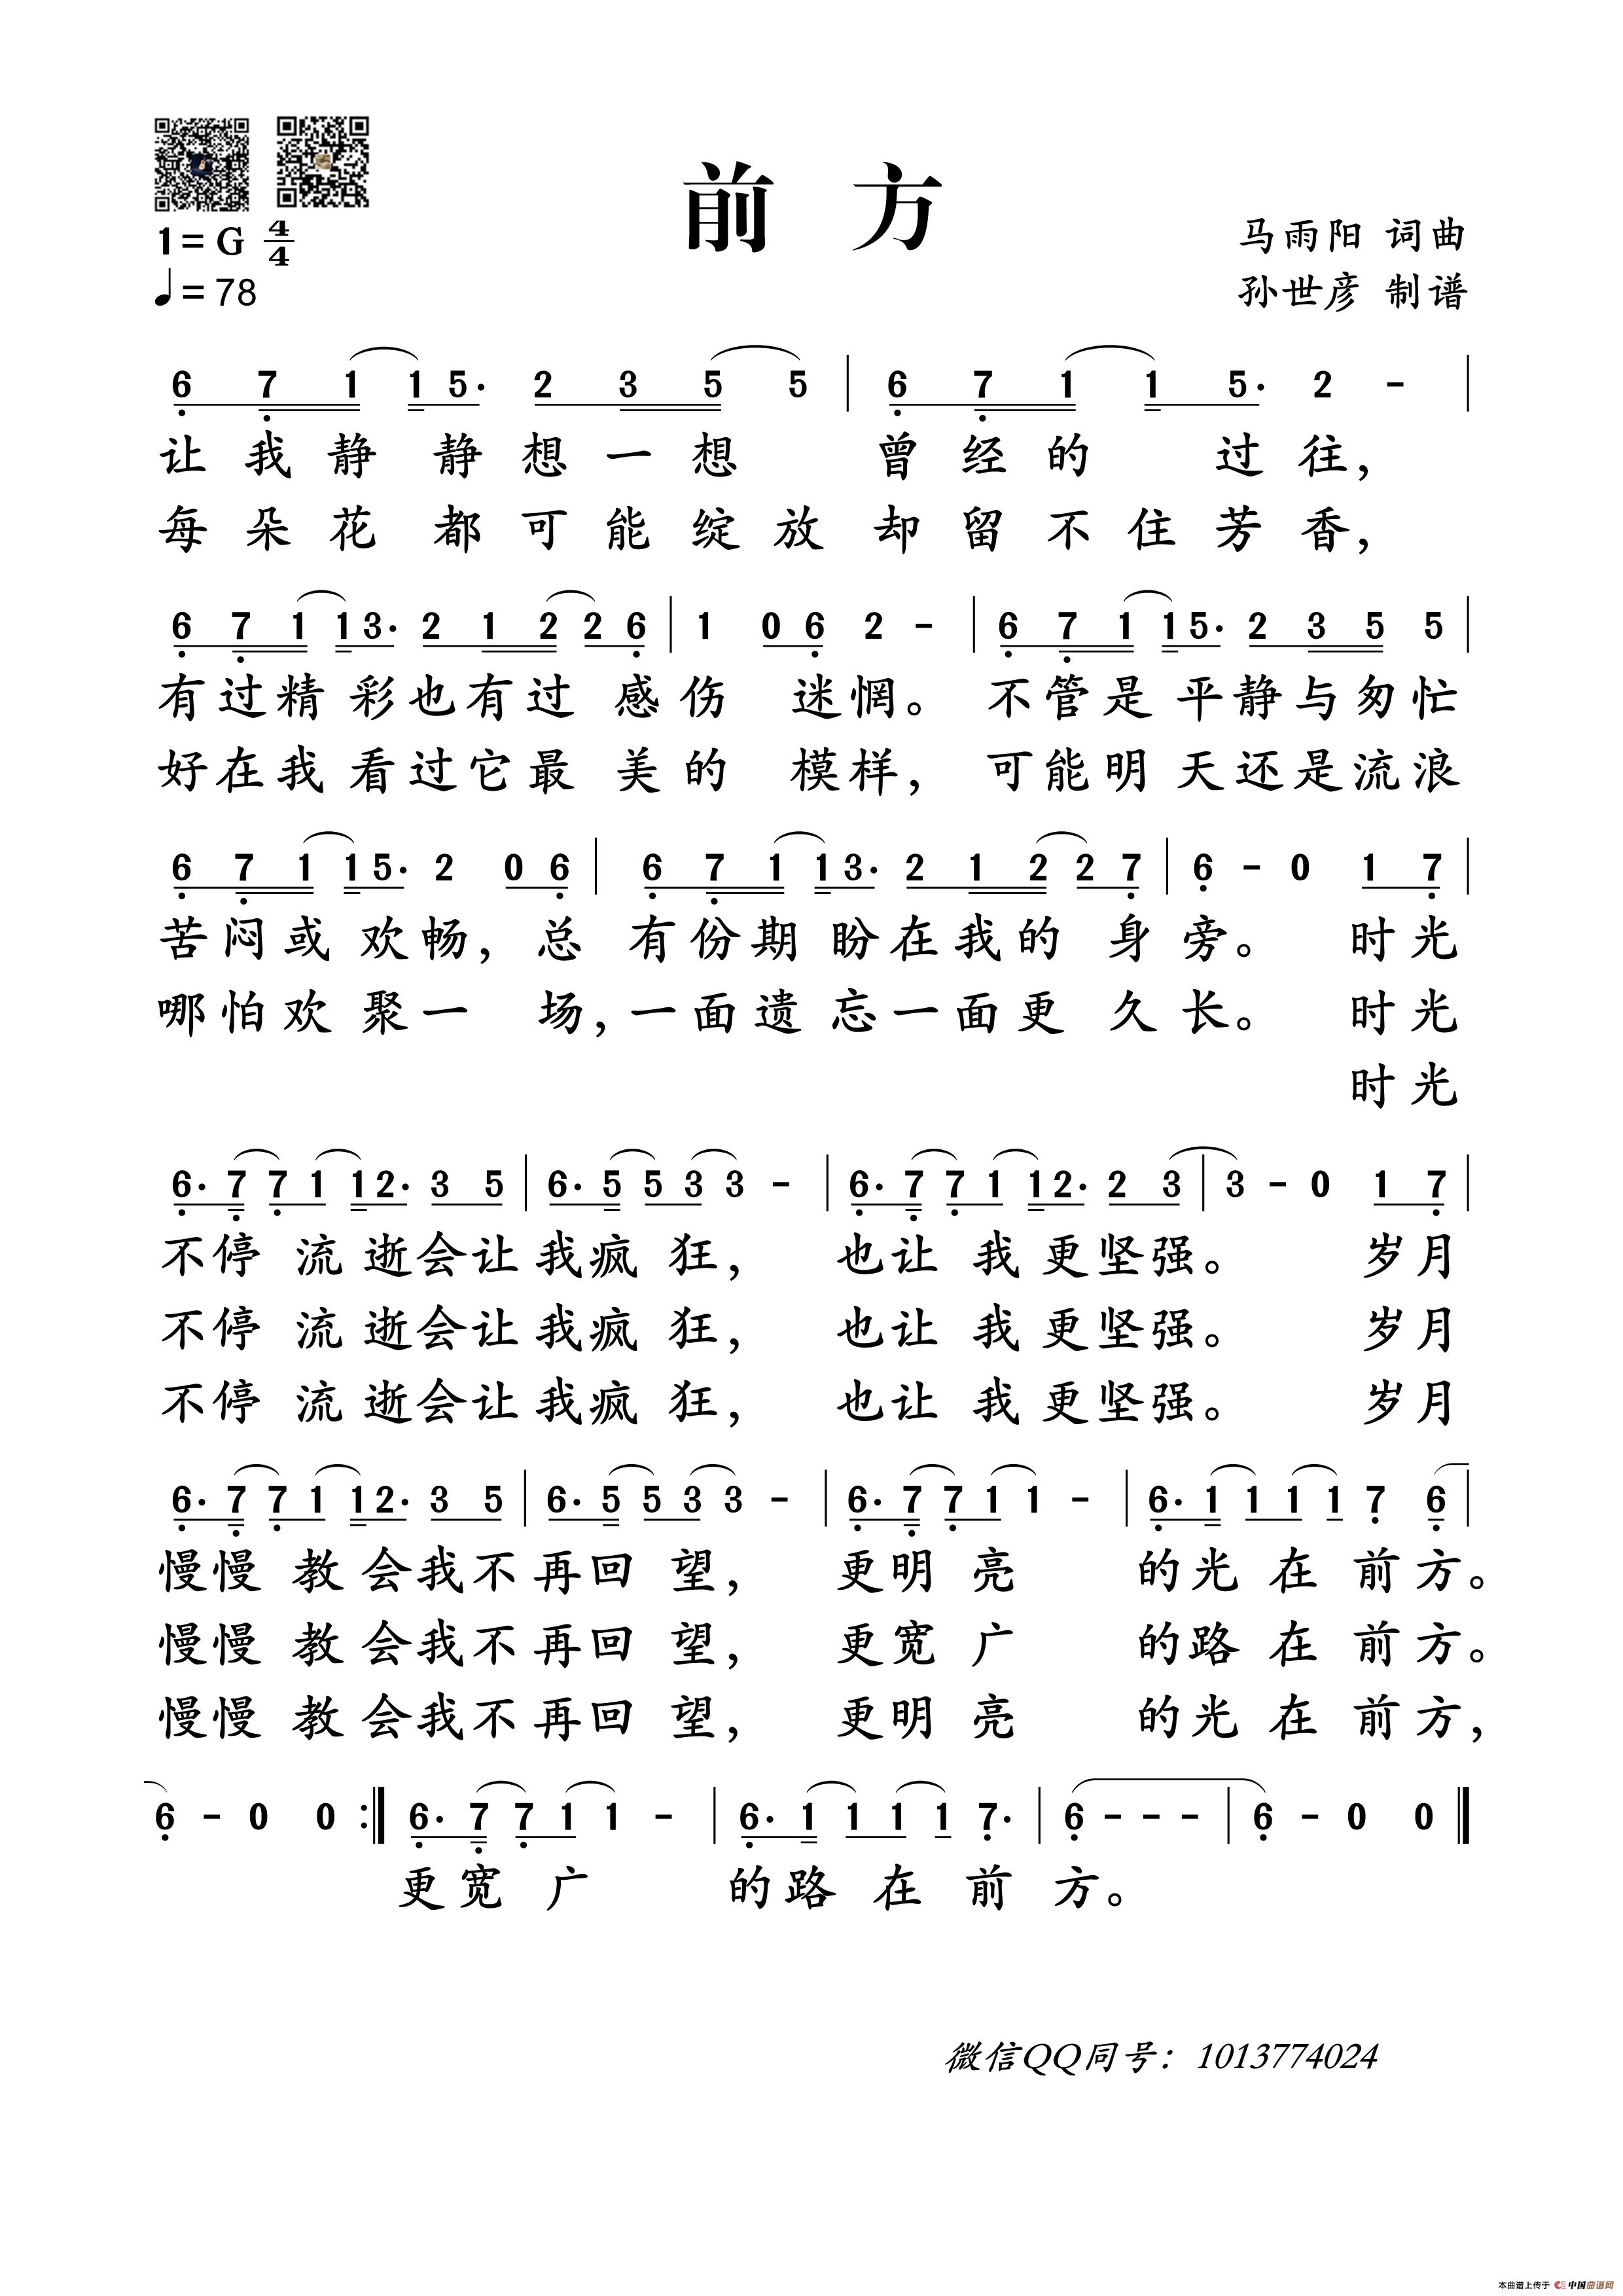 前 方
1=G 4/4
♩=78
马雨阳 词曲
孙世彦 制谱
6 7 1 1 5· 2 3 5 5 | 6 7 1 1 5· 2 - |
让我静静想一想 曾经的过往,
每朵花都可能绽放却留不住芳香,
6 7 1 1 3· 2 1 2 2 6 | 1 0 6 2 - | 6 7 1 1 5· 2 3 5 5 |
有过精彩也有过感伤 迷惘。不管是平静与匆忙
好在我看过它最美的 模样,可能明天还是流浪
6 7 1 1 5· 2 0 6 | 6 7 1 1 3· 2 1 2 2 7 | 6 - 0 1 7 |
苦闷或欢畅,总 有份期盼在我的身旁。 时光
哪怕欢聚一 场,一面遗忘一面更久长。 时光
时光
6· 7 7 1 1 2· 3 5 | 6· 5 5 3 3 - | 6· 7 7 1 1 2· 2 3 | 3 - 0 1 7 |
不停流逝会让我疯狂, 也让我更坚强。 岁月
不停流逝会让我疯狂, 也让我更坚强。 岁月
不停流逝会让我疯狂, 也让我更坚强。 岁月
6· 7 7 1 1 2· 3 5 | 6· 5 5 3 3 - | 6· 7 7 1 1 - | 6· 1 1 1 1 7 6 |
慢慢教会我不再回望, 更明亮 的光在前方。
慢慢教会我不再回望, 更宽广 的路在前方。
慢慢教会我不再回望, 更明亮 的光在前方,
6 - 0 0 :‖ 6· 7 7 1 1 - | 6· 1 1 1 1 7· | 6 - - - | 6 - 0 0 ‖
更宽广 的路在前方。
微信QQ同号：1013774024
本曲谱上传于 中国曲谱网